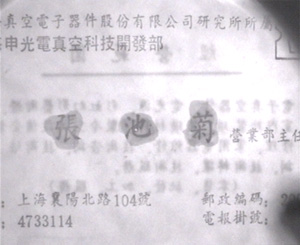 真空電子器件股份有限公司研究所所屬
申光電真空科技開發部
張 池 菊 營業部主任
上海襄陽北路104號 郵政編碼:
4733114 電報掛號: